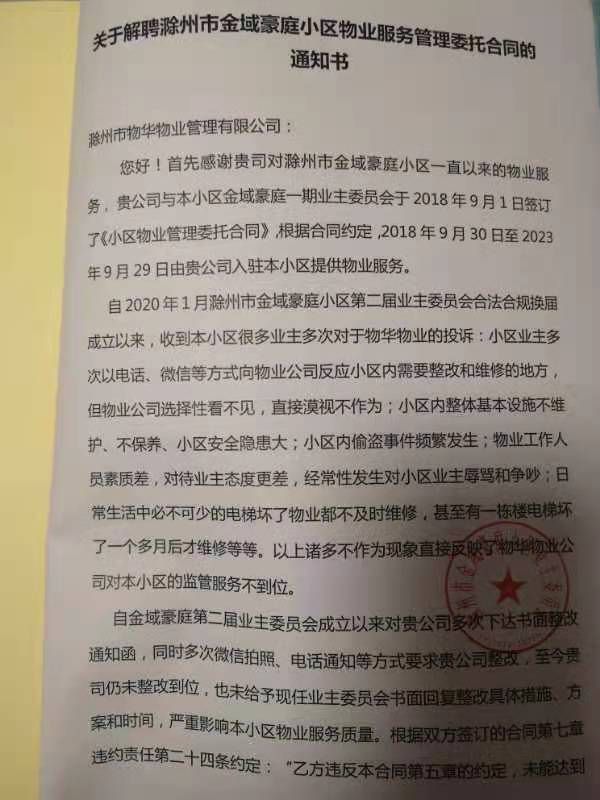 关于解聘滁州市金域豪庭小区物业服务管理委托合同的
通知书
滁州市物华物业管理有限公司：
您好！首先感谢贵司对滁州市金域豪庭小区一直以来的物业服
务，贵公司与本小区金域豪庭一期业主委员会于 2018 年 9 月 1 日签订
了《小区物业管理委托合同》,根据合同约定,2018 年 9 月 30 日至 2023
年 9 月 29 日由贵公司入驻本小区提供物业服务。
自 2020 年 1 月滁州市金域豪庭小区第二届业主委员会合法合规换届
成立以来，收到本小区很多业主多次对于物华物业的投诉：小区业主多
次以电话、微信等方式向物业公司反应小区内需要整改和维修的地方，
但物业公司选择性看不见，直接漠视不作为；小区内整体基本设施不维
护、不保养、小区安全隐患大；小区内偷盗事件频繁发生；物业工作人
员素质差，对待业主态度更差，经常性发生对小区业主辱骂和争吵；日
常生活中必不可少的电梯坏了物业都不及时维修，甚至有一栋楼电梯坏
了一个多月后才维修等等。以上诸多不作为现象直接反映了物华物业公
司对本小区的监管服务不到位。
自金域豪庭第二届业主委员会成立以来对贵公司多次下达书面整改
通知函，同时多次微信拍照、电话通知等方式要求贵公司整改，至今贵
司仍未整改到位，也未给予现任业主委员会书面回复整改具体措施、方
案和时间，严重影响本小区物业服务质量。根据双方签订的合同第七章
违约责任第二十四条约定：“乙方违反本合同第五章的约定，未能达到